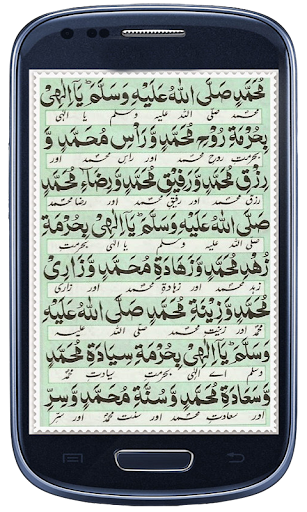 مُحَمَّدٍ صَلَّى اللهُ عَلَيْهِ وَسَلَّمَ يَآ اِلٰهِىْ
محمد صلى الله عليه وسلم يا الهى
بِحُرْمَةِ رُوْحِ مُحَمَّدٍ وَّرَأْسِ مُحَمَّدٍ وَّ
بحرمت روح محمد اور راس محمد اور
رِزْقِ مُحَمَّدٍ وَّرَفِيْقِ مُحَمَّدٍ وَّرِضَآءِ مُحَمَّدٍ
رزق محمد اور رفيق محمد اور رضا محمد
صَلَّى اللهُ عَلَيْهِ وَسَلَّمَ يَآ اِلٰهِىْ بِحُرْمَةِ
صلى الله عليه وسلم يا الهى بحرمت
زُهْدِ مُحَمَّدٍ وَّزَهَادَةِ مُحَمَّدٍ وَّزَارِىْ
زہد محمد اور زہادۃ محمد اور زارى
مُحَمَّدٍ وَّزِيْنَةِ مُحَمَّدٍ صَلَّى اللهُ عَلَيْهِ
محمد اور زينت محمد صلى الله عليه
وَسَلَّمَ يَآ اِلٰهِىْ بِحُرْمَةِ سِيَادَةِ مُحَمَّدٍ
وسلم اے الہى بحرمت سيادت محمد
وَّسَعَادَةِ مُحَمَّدٍ وَّسُنَّةِ مُحَمَّدٍ وَّسِرِّ
اور سعادت محمد اور سنت محمد اور سر